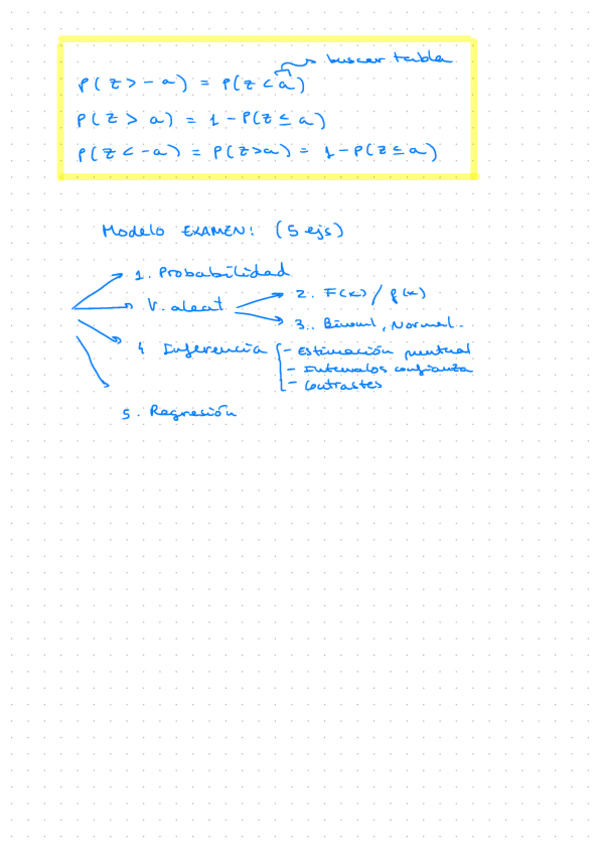 buscar tabla
P(Z > -a) = P(Z < a)
P(Z > a) = 1 - P(Z ≤ a)
P(Z < -a) = P(Z > a) = 1 - P(Z ≤ a)
Modelo EXAMEN: (5 ejs)
1. Probabilidad
V. aleat
2. F(x) / f(x)
3.. Binoml, Normal.
4 Inferencia
- Estimación puntual
- Intervalos confianza
- Contrastes
5. Regresión